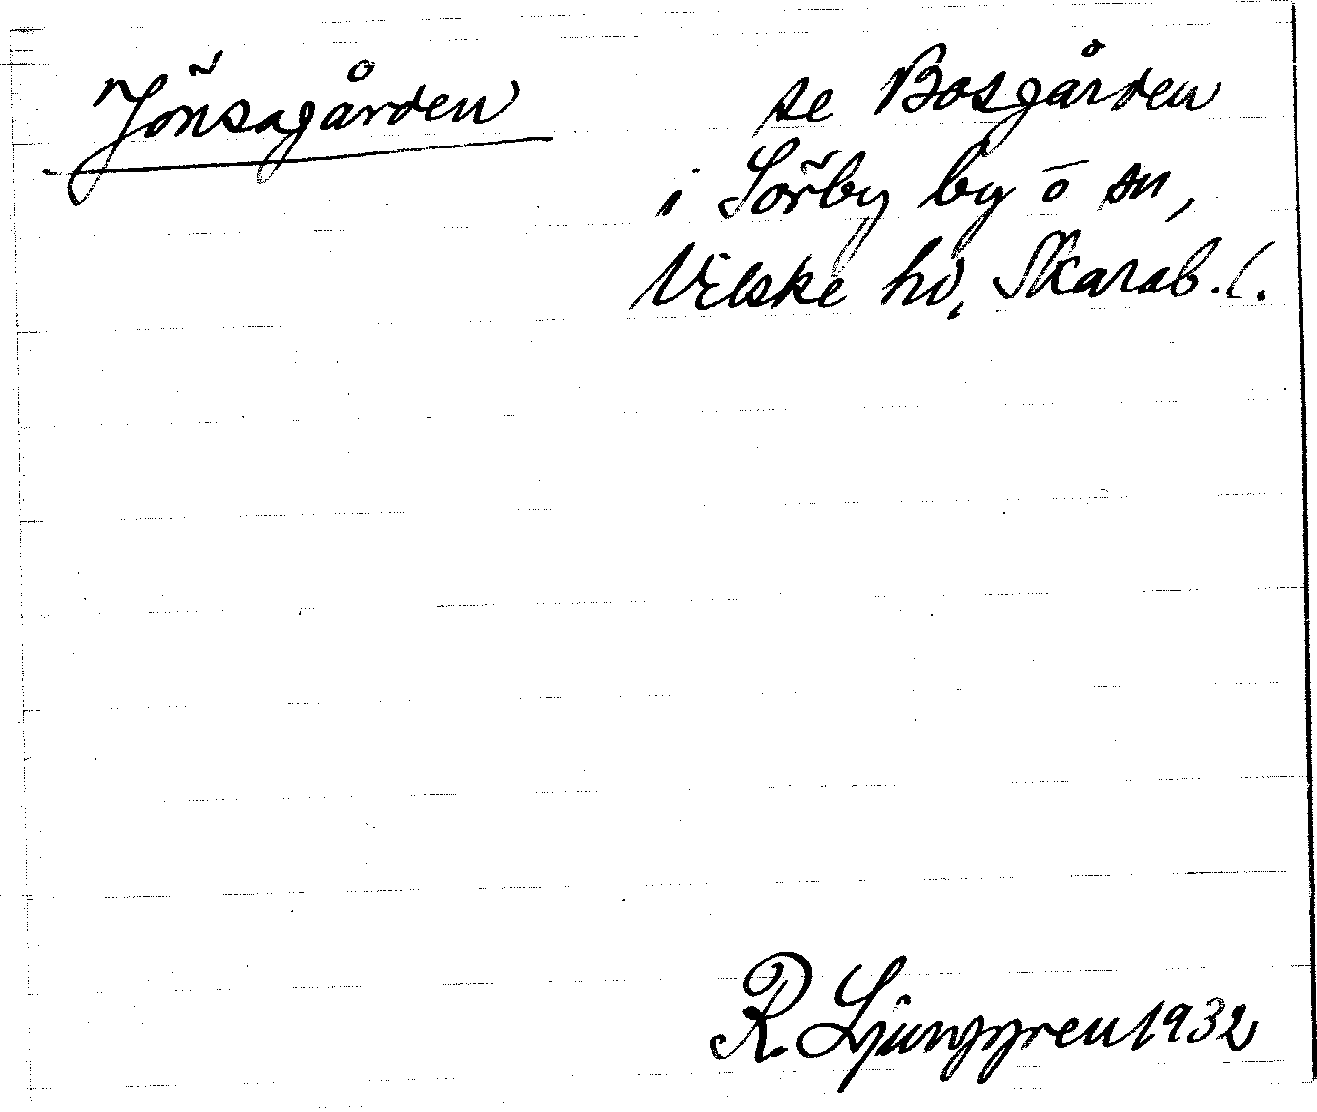 Jönsagården se Bosgården
i Sörby by o sn,
Vilske hd, Skarab. l.
R. Ljunggren 1932